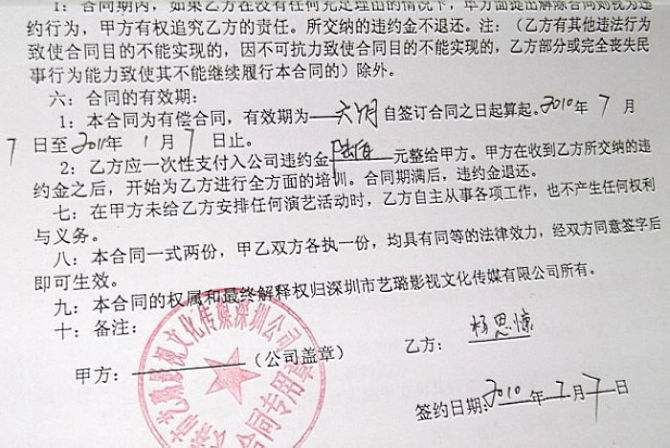 1：合同期内，如果乙方在没有任何充足理由的情况下，单方面提出解除合同则视为违
约行为，甲方有权追究乙方的责任。所交纳的违约金不退还。注：（乙方有其他违法行为
致使合同目的不能实现的，因不可抗力致使合同目的不能实现的，乙方部分或完全丧失民
事行为能力致使其不能继续履行本合同的）除外。
六：合同的有效期：
1：本合同为有偿合同，有效期为 六个月 自签订合同之日起算起。2010年 7 月
7 日至2011年 1 月 7 日止。
2：乙方应一次性支付入公司违约金 元整给甲方。甲方在收到乙方所交纳的违
约金之后，开始为乙方进行全方面的培训。合同期满后，违约金退还。
七：在甲方未给乙方安排任何演艺活动时，乙方自主从事各项工作，也不产生任何权利
与义务。
八：本合同一式两份，甲乙双方各执一份，均具有同等的法律效力，经双方同意签字后
即可生效。
九：本合同的权属和最终解释权归深圳市艺璐影视文化传媒有限公司所有。
十：备注：
甲方：（公司盖章）
乙方：杨思
影视文化传媒深圳公司
合同专用章
签约日期：2010 年 7 月 7 日